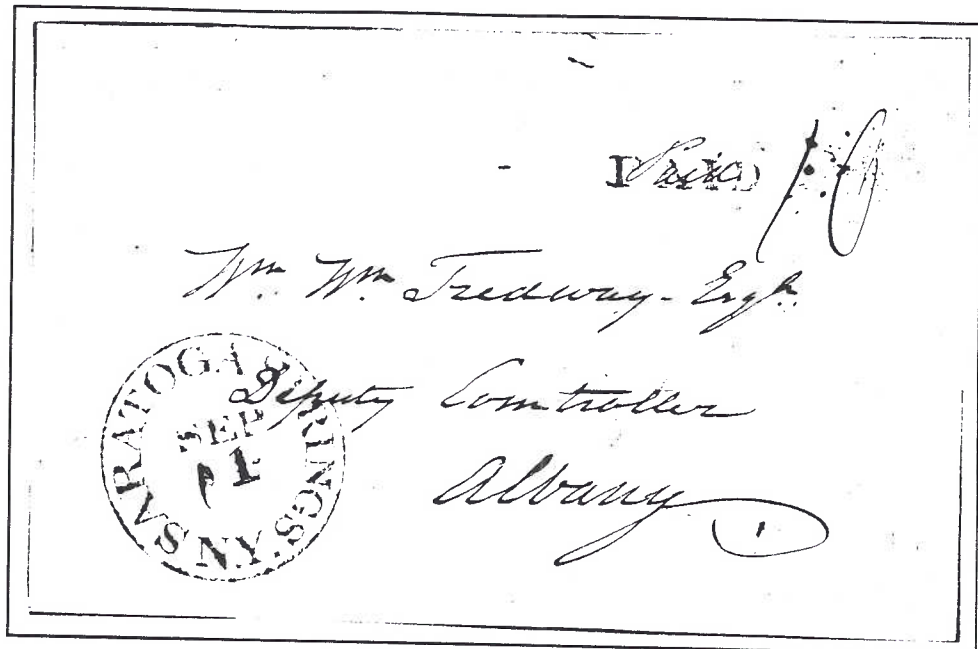 PAID Paid 10
Wm. Wm. Tredway - Esqr.
Deputy Comtroller
Albany
SARATOGA SPRINGS. N.Y
SEP
1